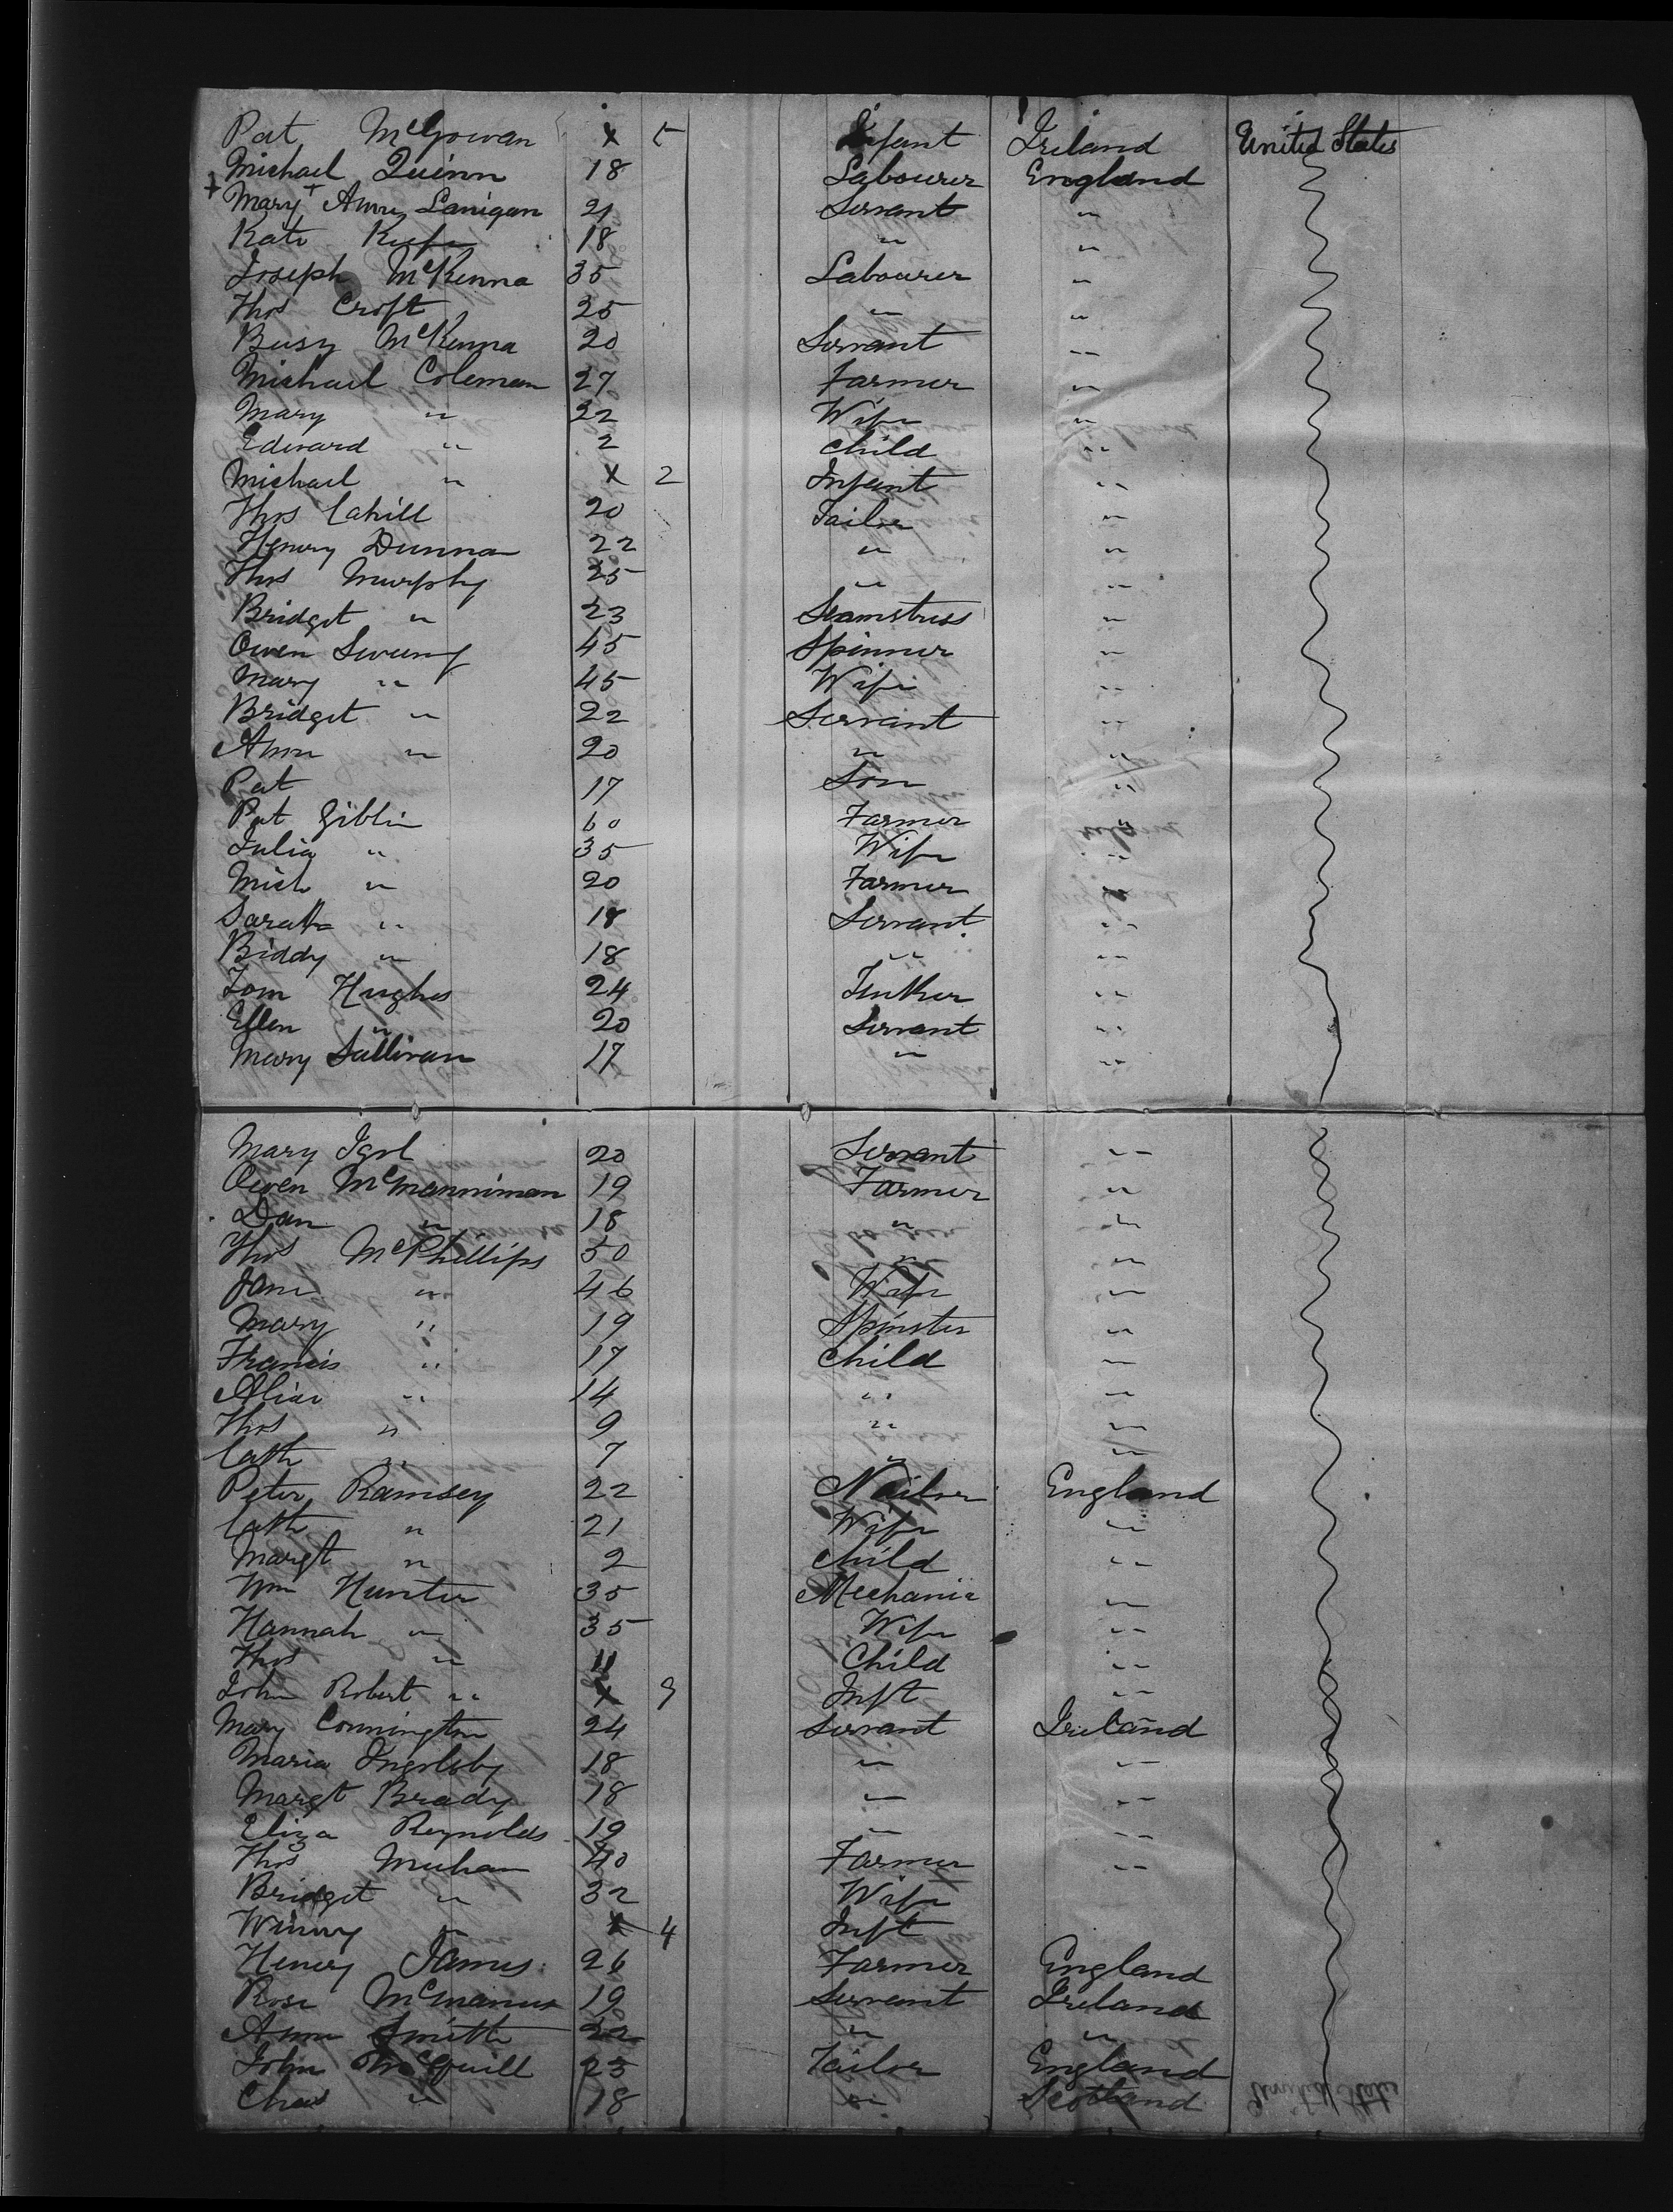 Pat McGowan x 5 Infant Ireland United States
Michael Quinn 18 Labourer England
Mary Ann Lanigan 21 Servant "
Kate 18 " "
Joseph McKenna 35 Labourer "
Thos Croft 25 " "
McKenna 20 Servant "
Michael Coleman 27 Farmer "
Mary " 22 Wife "
Edward " 2 Child "
Michael " x 2 Infant "
Thos Cahill 20 Tailor "
Henry Dunn 22 " "
Thos Murphy 25 " "
Bridget " 23 Seamstress "
Owen 45 Spinner "
Mary " 45 Wife "
Bridget " 22 Servant "
Ann " 20 " "
Pat 17 Son "
Pat Giblin 60 Farmer "
Julia " 35 Wife "
Mich " 20 Farmer "
Sarah " 18 Servant "
Biddy " 18 " "
Tom Hughes 24 "
Ellen " 20 Servant "
Mary Sullivan 17 " "
Mary 20 Servant "
Owen McManniman 19 Farmer "
Dan " 18 " "
Thos McPhillips 50 " "
Jane " 46 Wife "
Mary " 19 Spinster "
Francis " 17 Child "
" 14 " "
Thos " 9 " "
Cath " 7 " "
Peter Ramsey 22 Nailor England
Cath " 21 Wife "
Margt " 2 Child "
Wm Hunter 35 Mechanic "
Hannah " 35 Wife "
Thos " 11 Child "
John Robert " x 9 Inft "
Mary Connington 24 Servant Ireland
Maria 18 " "
Margt Brady 18 " "
Eliza Reynolds 19 " "
Thos Meehan 40 Farmer "
Bridget " 32 Wife
Winny " x 4 Inft
Henry James 26 Farmer England
Rose McManus 19 Servant Ireland
Ann Smith 22 " "
John McQuill 23 Tailor England
Chas " 18 " Scotland